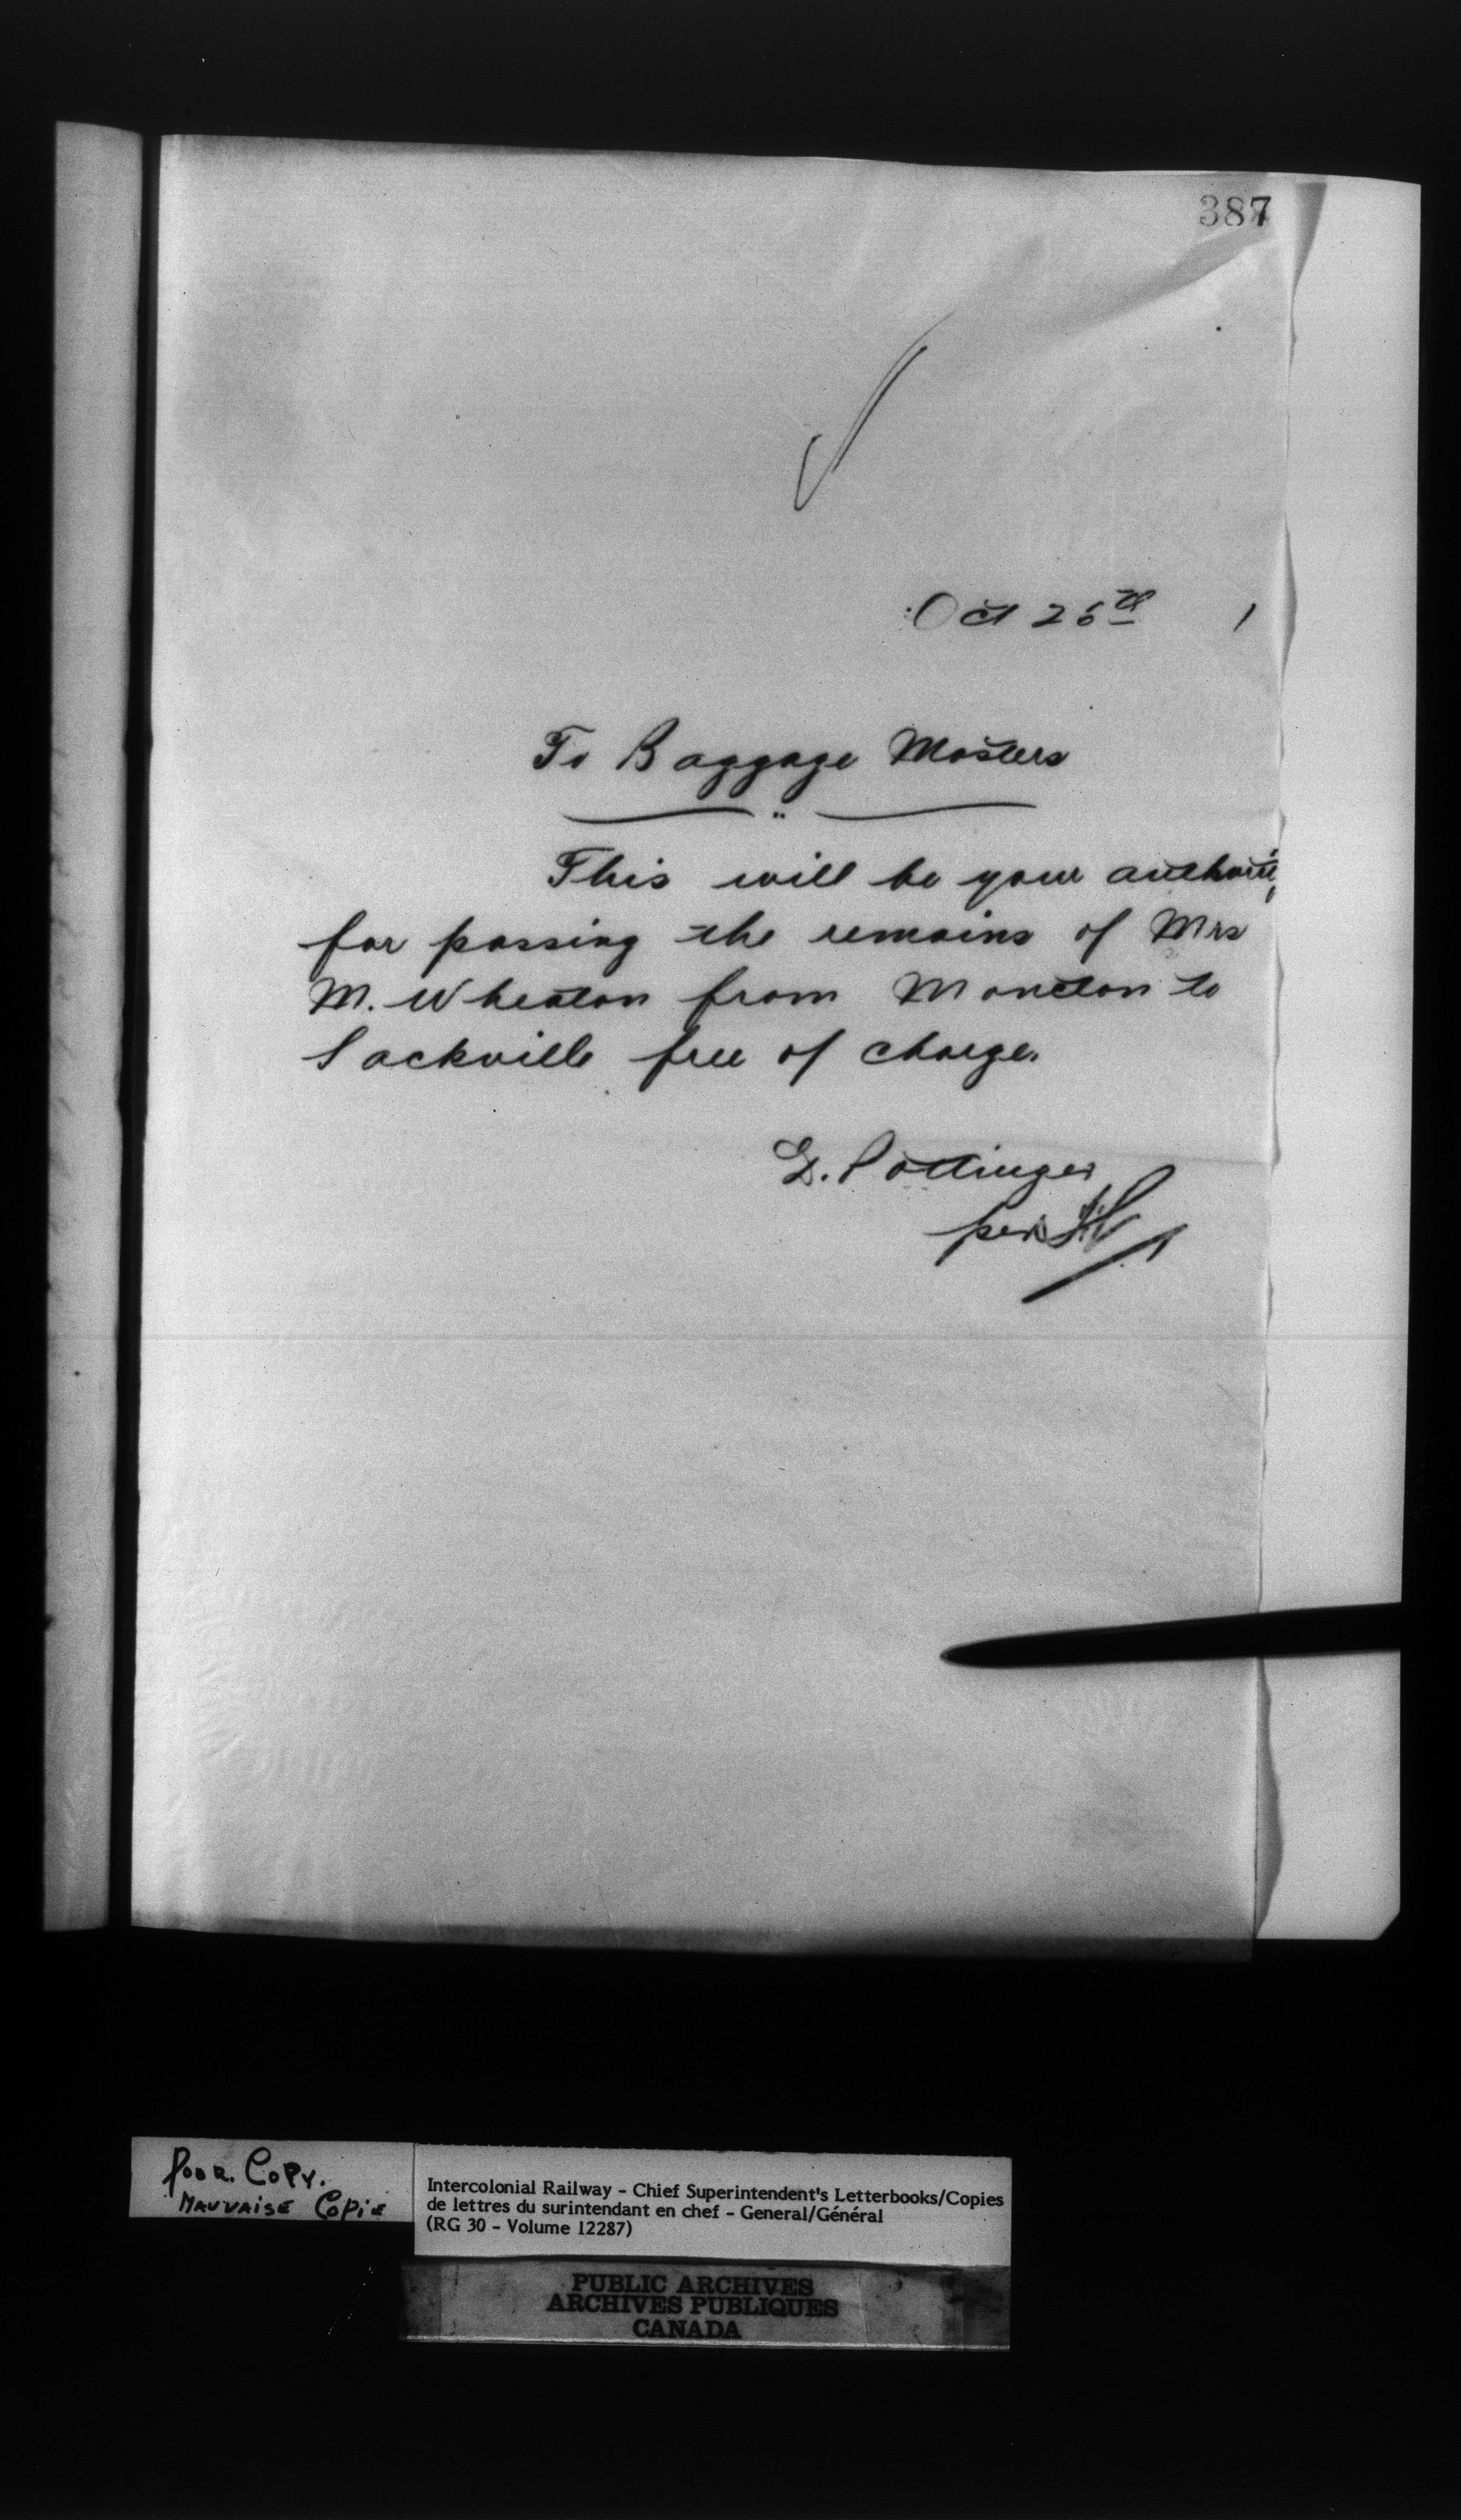 387
Oct 26th 1
To Baggage Masters
This will be your authority
for passing the remains of Mrs
M. Wheaton from Moncton to
Sackville free of charge.
D. Pottinger
per
Poor. Copy.
Mauvaise Copie
Intercolonial Railway - Chief Superintendent's Letterbooks/Copies
de lettres du surintendant en chef - General/Général
(RG 30 - Volume 12287)
PUBLIC ARCHIVES
ARCHIVES PUBLIQUES
CANADA